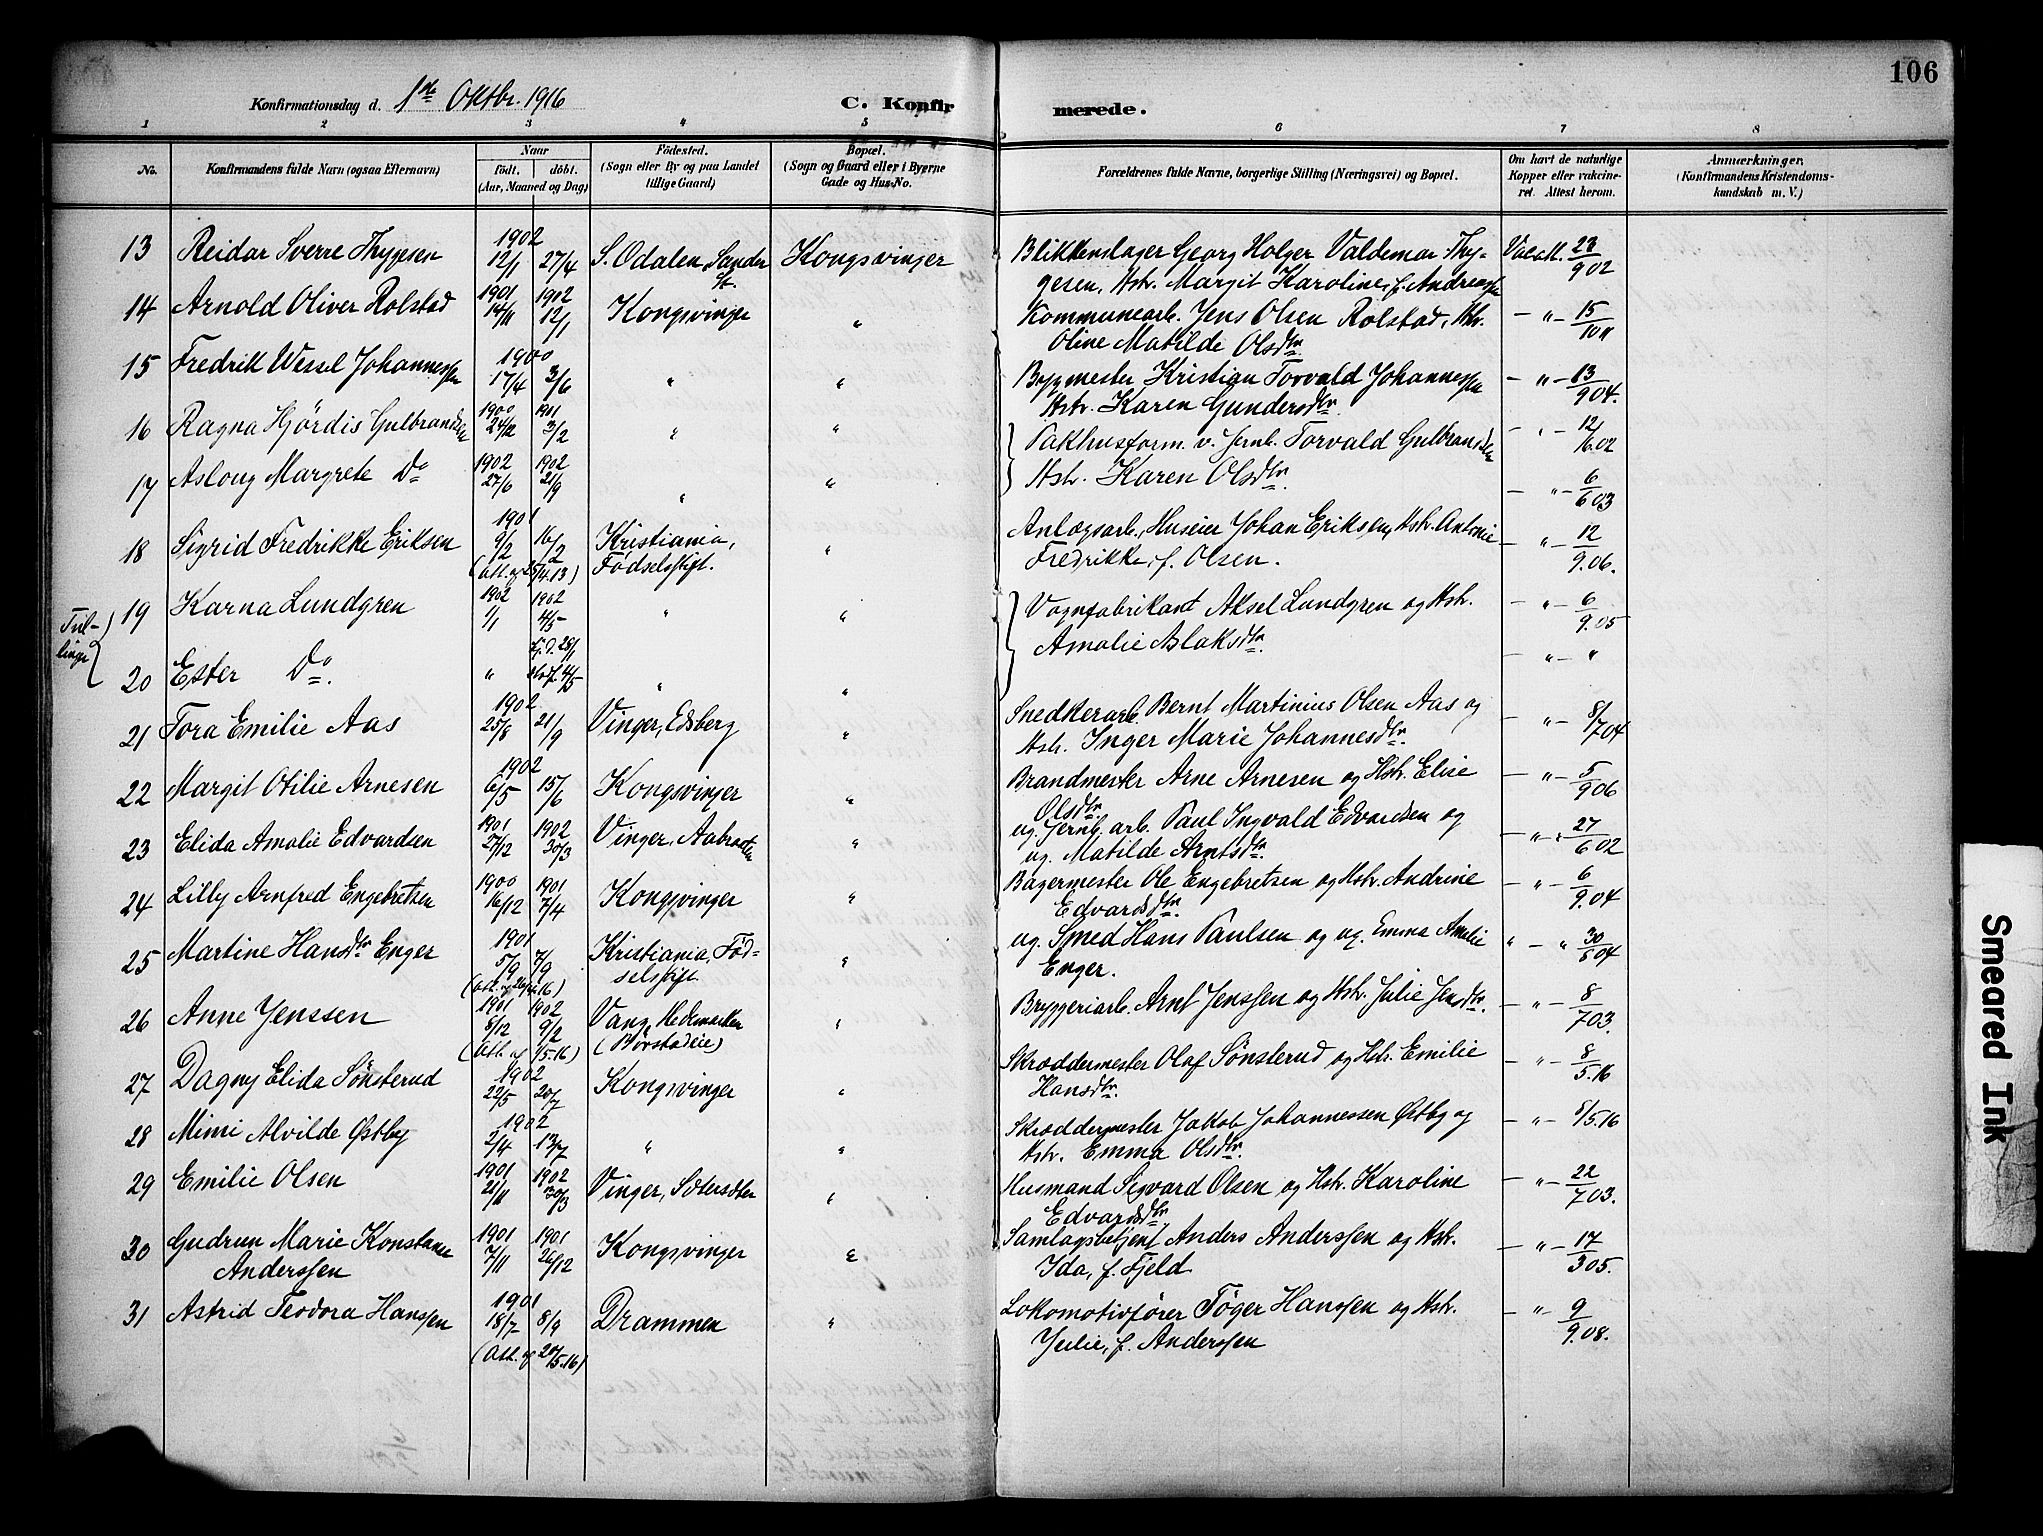 106
Konfirmationsdag d. 1ste Oktbr. 1916 C. Konfirmerede.
1 2 3 4 5 6 7 8
No. Konfirmandens fulde Navn (ogsaa Efternavn) Naar født. døbt. (Aar, Maaned og Dag) Fødested. (Sogn eller By og paa Landet tillige Gaard) Bopæl. (Sogn og Gaard eller i Byerne Gade og Hus-No. Forældrenes fulde Navne, borgerlige Stilling (Næringsvei) og Bopæl. Om havt de naturlige Kopper eller vakcineret. Attest herom. Anmærkninger. (Konfirmandens Kristendomskundskab m. V.)
13 Reidar Sverre Thygesen 1902 12/1 27/4 S. Odalen, Sander St. Kongsvinger Blikkenslager Georg Holger Valdemar Thygesen, Hstr. Margit Karoline, f. Andreassen Vacc. att. 23/902
14 Arnold Oliver Rolstad 1901 14/11 1902 12/1 Kongsvinger " Kommunearb. Jens Olsen Rolstad, Hstr. Oline Matilde Olsdtr. — " — 15/1011
15 Fredrik Wessel Johannessen 1900 17/4 3/6 " " Bygmester Kristian Torvald Johannessen Hstr. Karen Gundersdtr. — " — 13/904.
16 Ragna Hjørdis Gulbrandsen 1900 24/12 1901 3/2 " " Pakhusform. v. Jernb. Torvald Gulbrandsen — " — 12/6.02
17 Aslaug Margrete Do 1902 27/6 1902 21/9 " " Hstr. Karen Olsdtr. — " — 6/603
18 Sigrid Fredrikke Eriksen 1901 9/2 16/2 (Att. af 25/4.13) Kristiania, Fødselsstift. " Anlægsarb., Huseier Johan Eriksen, Hstr. Antonie Fredrikke, f. Olsen. — " — 12/9.06.
Tvillinger
19 Karna Lundgren 1902 1/1 1902 4/5 " " Vognfabrikant Aksel Lundgren og Hstr. Amalie Aslaksdtr. — " — 6/9.05
20 Ester Do. " Hj.d. 28/1 4/5 " " — " — "
21 Tora Emilie Aas 1902 25/8 21/9 Vinger, Edsberg " Snedkerarb. Bernt Martinius Olsen Aas og Hstr. Inger Marie Johannesdtr. — " — 8/704
22 Margit Otilie Arnesen 1902 6/5 15/6 Kongsvinger " Brandmester Arne Arnesen og Hstr. Elise Olsdtr. — " — 5/906
23 Elida Amalie Edvardsen 1901 27/12 1902 30/3 Vinger, Aabraaten " ug. Jernb. arb. Paul Ingvald Edvardsen og ug. Matilde Arntsdtr. — " — 27/602
24 Lilly Arnfred Engebretsen 1900 16/12 1901 7/4 Kongsvinger " Bagermester Ole Engebretsen og Hstr. Andrine Edvardsdtr. — " — 6/9.04
25 Martine Hansdtr. Enger 1901 5/9 7/9 Kristiania, Fødselsstift. " ug. Smed Hans Paulsen og ug. Emma Amalie Enger. " — " 30/604
26 Anne Jenssen 1901 8/12 1902 9/2 (Att. af 1/5.16) Vang, Hedemarken (Børstadeie) " Bryggeriarb. Arnt Jenssen og Hstr. Julie Jensdtr. — " — 8/703.
27 Dagny Elida Sønsterud 1902 22/5 20/7 Kongsvinger " Skræddermester Olaf Sønsterud og Hstr. Emilie Hansdtr. — " — 8/5.16
28 Mimi Alvilde Østby 1902 2/4 13/7 " " Skræddermester Jakob Johannessen Østby og Hstr. Emma Olsdtr. — " — 8/5.16
29 Emilie Olsen 1901 21/11 1902 30/3 Vinger, Sætersæter " Husmand Sigvard Olsen og Hstr. Karoline Edvardsdtr. — " — 22/703.
30 Gudrun Marie Konstanse Anderssen 1901 7/11 1901 26/12 Kongsvinger " Samlagsbetjent Anders Anderssen og Hstr. Ida, f. Fjeld — " — 17/305.
31 Astrid Teodora Hanssen 1901 18/7 8/9 (Att. af 20/5.16) Drammen " Lokomotivfører Tøger Hanssen og Hstr. Julie, f. Anderssen — " — 9/9.08.
Smeared Ink